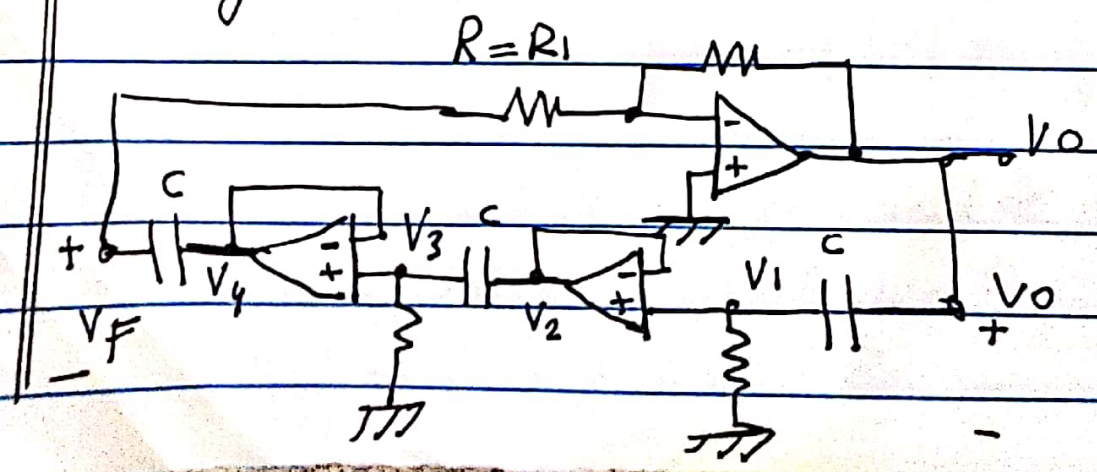 R=R1
-
+
VO
C
C
C
+
-
+
V3
-
+
V1
VO
+
V4
V2
VF
-
-